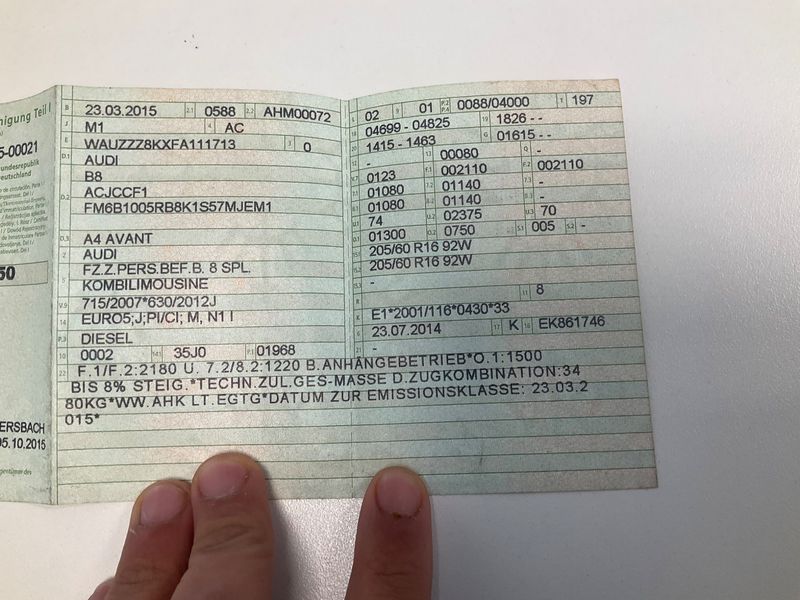 nigung Teil I
5-00021
undesrepublik
eutschland
50
ERSBACH
05.10.2015
B 23.03.2015 2.1 0588 2.2 AHM00072
J M1 4 AC
E WAUZZZ8KXFA111713 3 0
D.1 AUDI
B8
D.2 ACJCCF1
FM6B1005RB8K1S57MJEM1
D.3 A4 AVANT
2 AUDI
5 FZ.Z.PERS.BEF.B. 8 SPL.
KOMBILIMOUSINE
V.9 715/2007*630/2012J
14 EURO5;J;PI/CI; M, N1 I
P.3 DIESEL
10 0002 14.1 35J0 P.1 01968
L 02 9 01 P.2 P.4 0088/04000 T 197
18 04699 - 04825 19 1826 - -
20 1415 - 1463 G 01615 - -
12 - 13 00080 Q -
V.7 0123 F.1 002110 F.2 002110
7.1 01080 7.2 01140 7.3 -
8.1 01080 8.2 01140 8.3 -
U.1 74 U.2 02375 U.3 70
O.1 01300 O.2 0750 S.1 005 S.2 -
15.1 205/60 R16 92W
15.2 205/60 R16 92W
15.3 -
R 11 8
K E1*2001/116*0430*33
6 23.07.2014 17 K 16 EK861746
21 -
22 F.1/F.2:2180 U. 7.2/8.2:1220 B.ANHÄNGEBETRIEB*O.1:1500
BIS 8% STEIG.*TECHN.ZUL.GES-MASSE D.ZUGKOMBINATION:34
80KG*WW.AHK LT.EGTG*DATUM ZUR EMISSIONSKLASSE: 23.03.2
015*